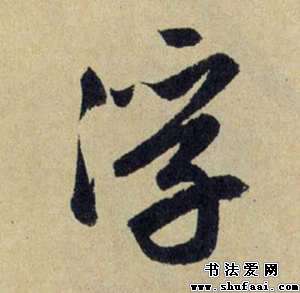 浮
书法爱网
www.shufaai.com